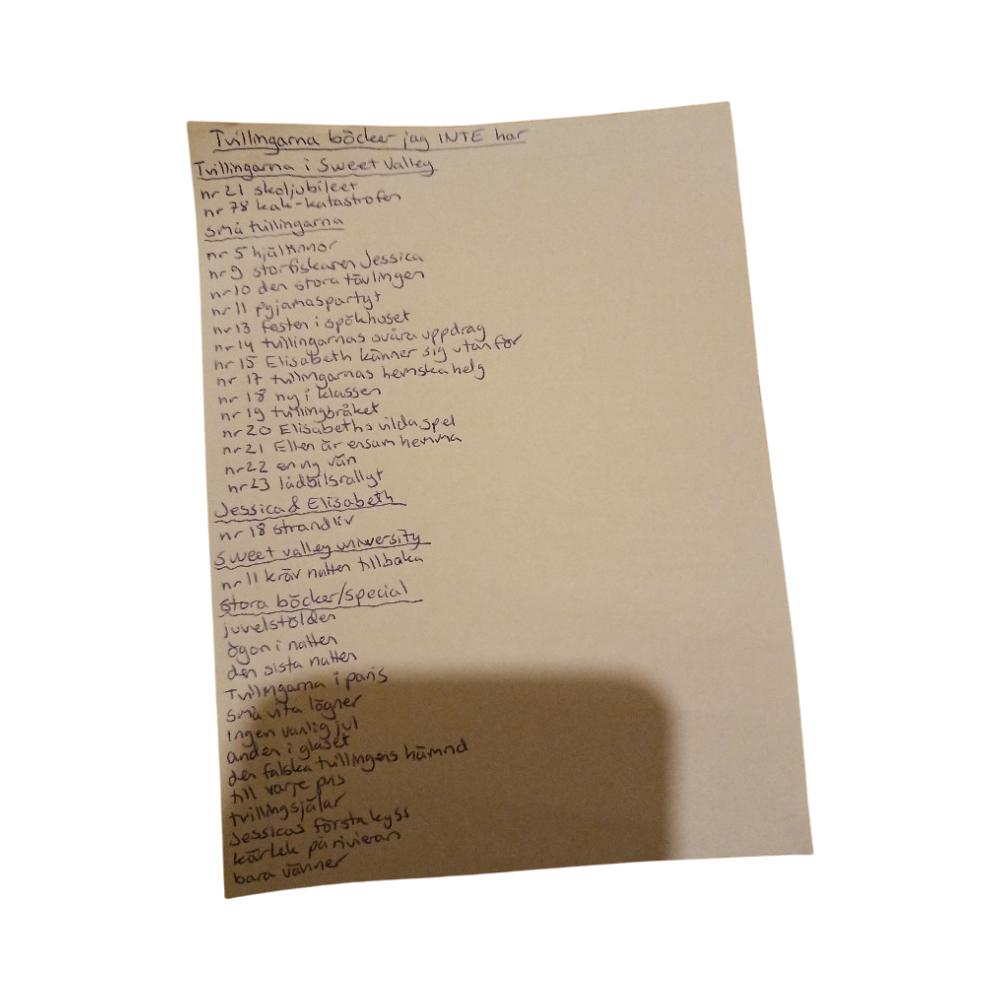 Tvillingarna böcker jag INTE har
Tvillingarna i Sweet Valley
nr 21 skoljubileet
nr 78 kak-katastrofen
små tvillingarna
nr 5 hjältinnor
nr 9 storfiskaren Jessica
nr 10 den stora tävlingen
nr 11 pyjamaspartyt
nr 13 festen i spökhuset
nr 14 tvillingarnas svåra uppdrag
nr 15 Elisabeth känner sig utanför
nr 17 tvillingarnas hemska helg
nr 18 ny i klassen
nr 19 tvillingbråket
nr 20 Elisabeths vilda spel
nr 21 Ellen är ensam hemma
nr 22 en ny vän
nr 23 lådbilsrallyt
Jessica & Elisabeth
nr 18 strandliv
Sweet valley university
nr 11 kräv natten tillbaka
stora böcker/special
juvelstölden
ögon i natten
den sista natten
Tvillingarna i paris
små vita lögner
ingen vanlig jul
anden i glaset
den falska tvillingens hämnd
till varje pris
tvillingsjälar
Jessicas första kyss
kärlek på rivieran
bara vänner